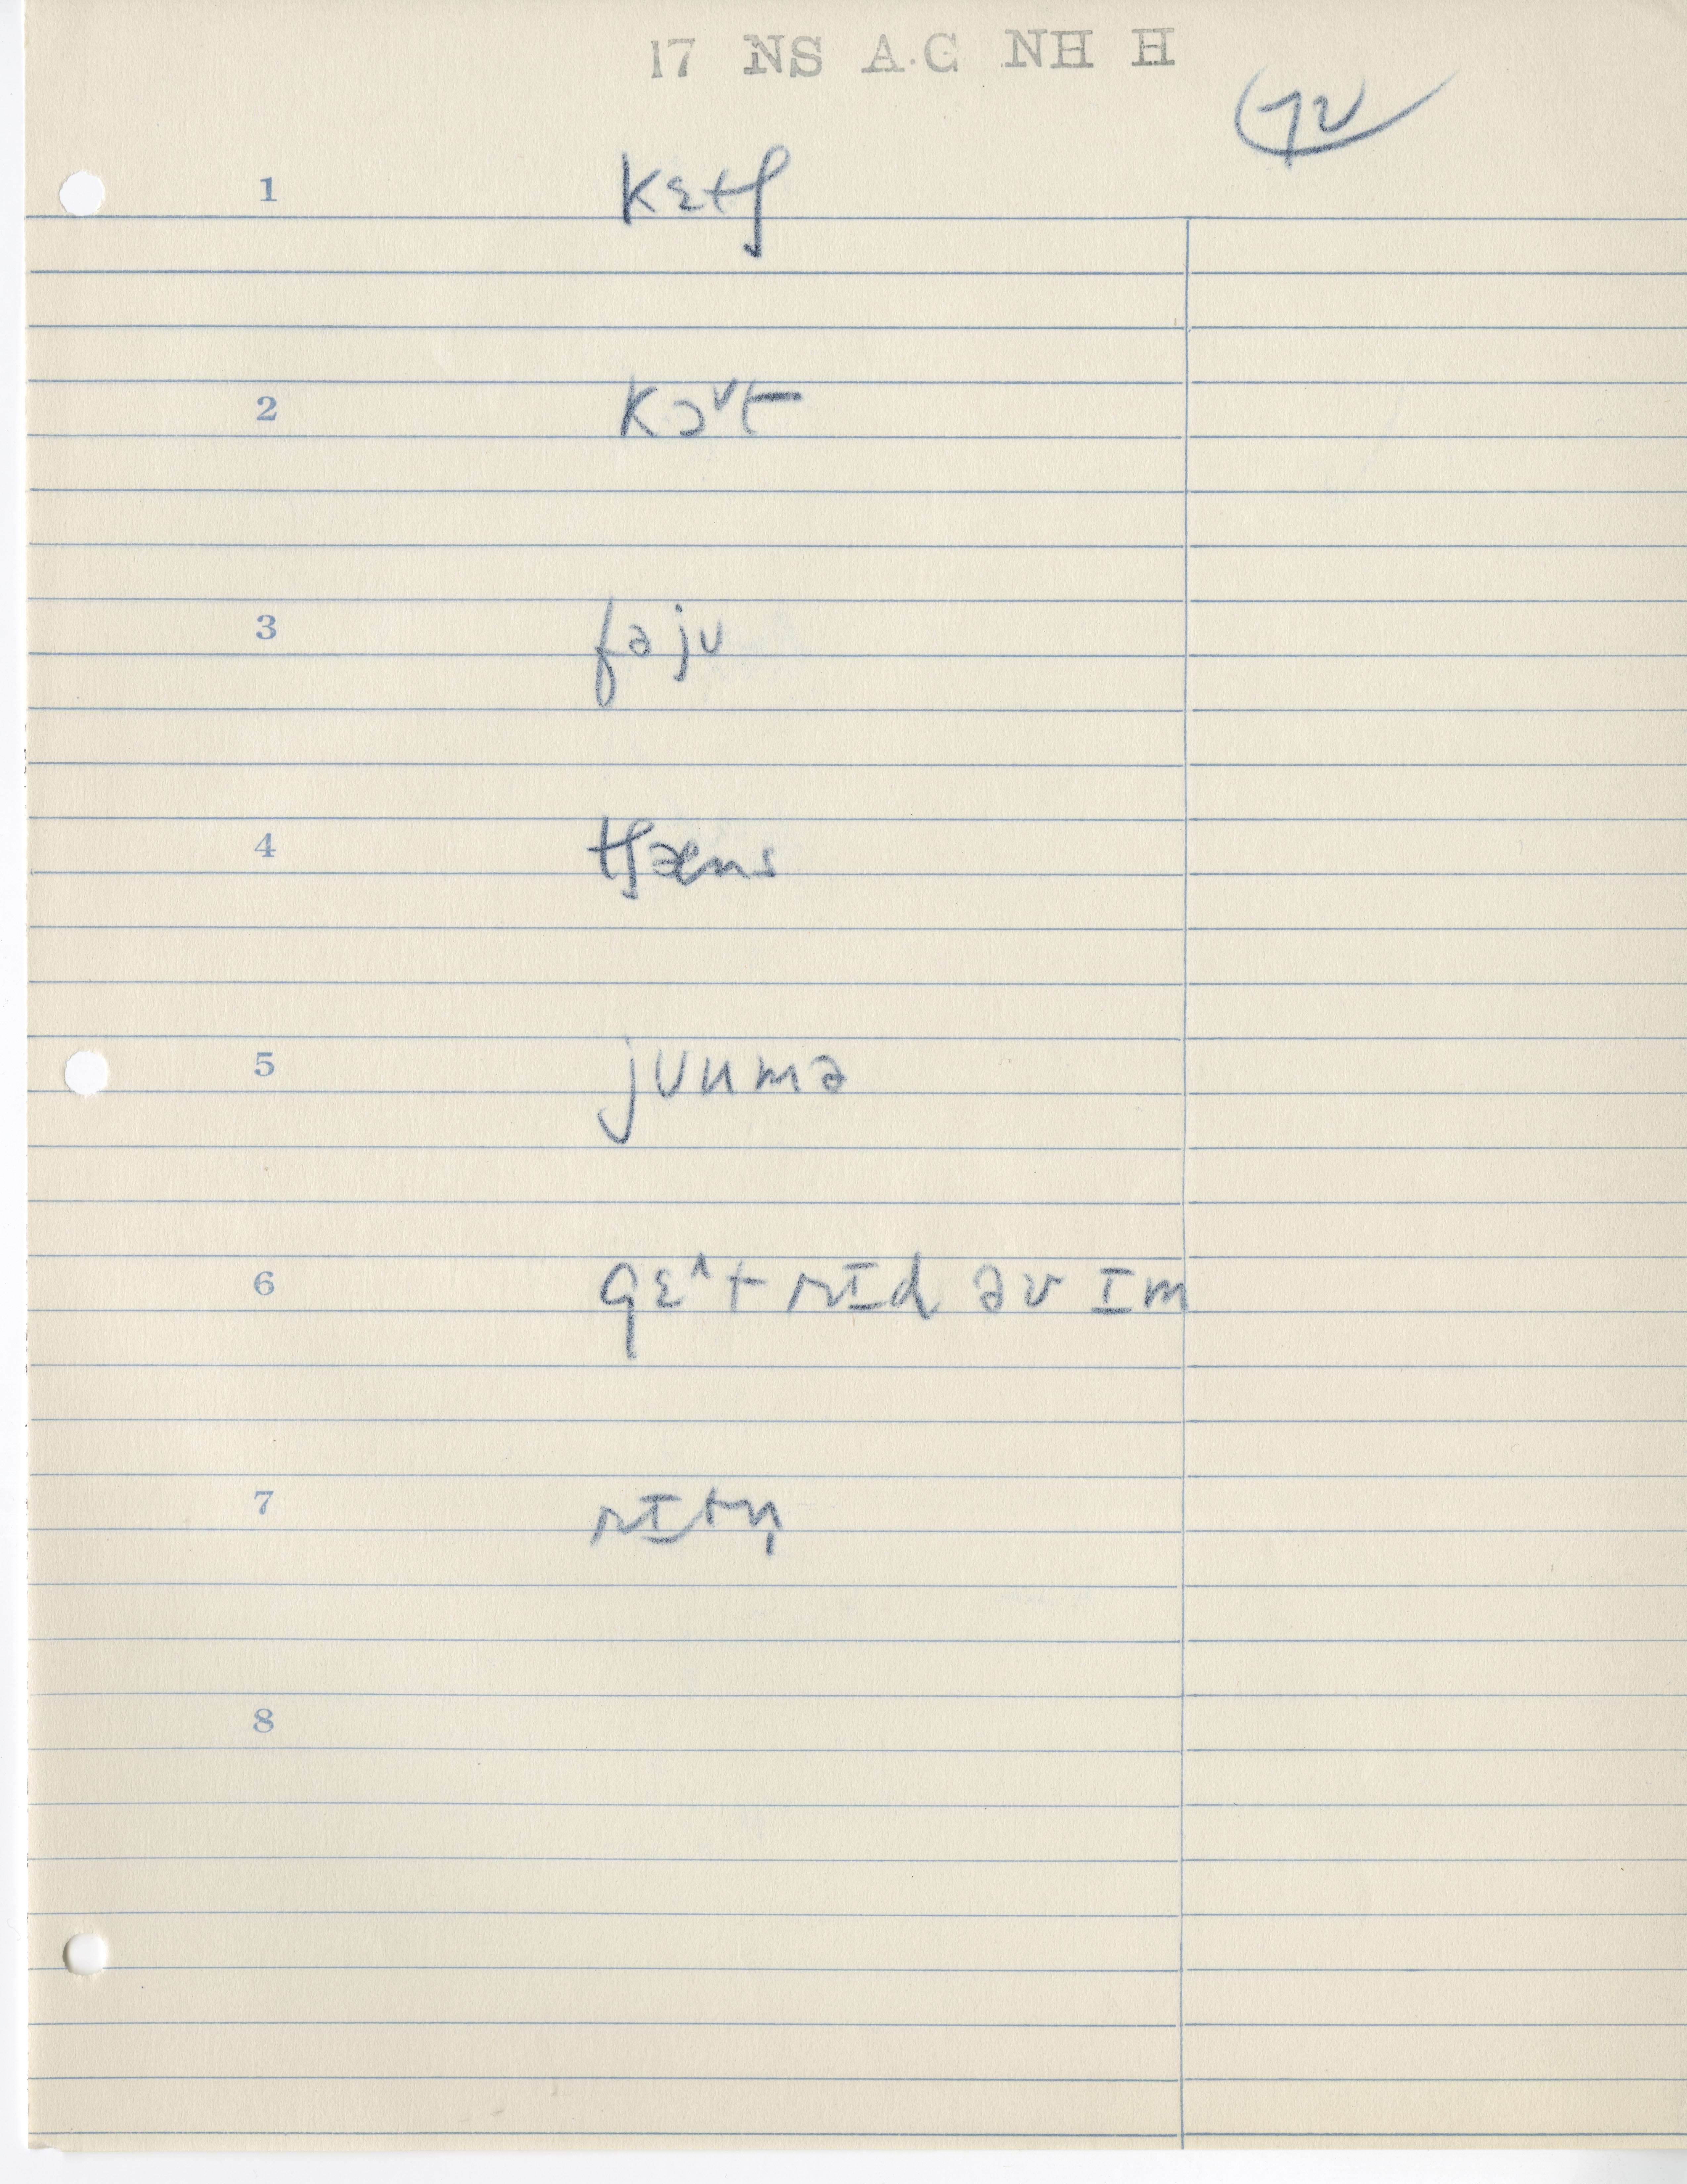 17 NS A.C NH H
72
1 kɛtʃ
2 kɔᵛt
3 fəju
4 tʃæns
5 juumə
6 gɛ^t rɪd əv ɪm
7 rɪtn̩
8